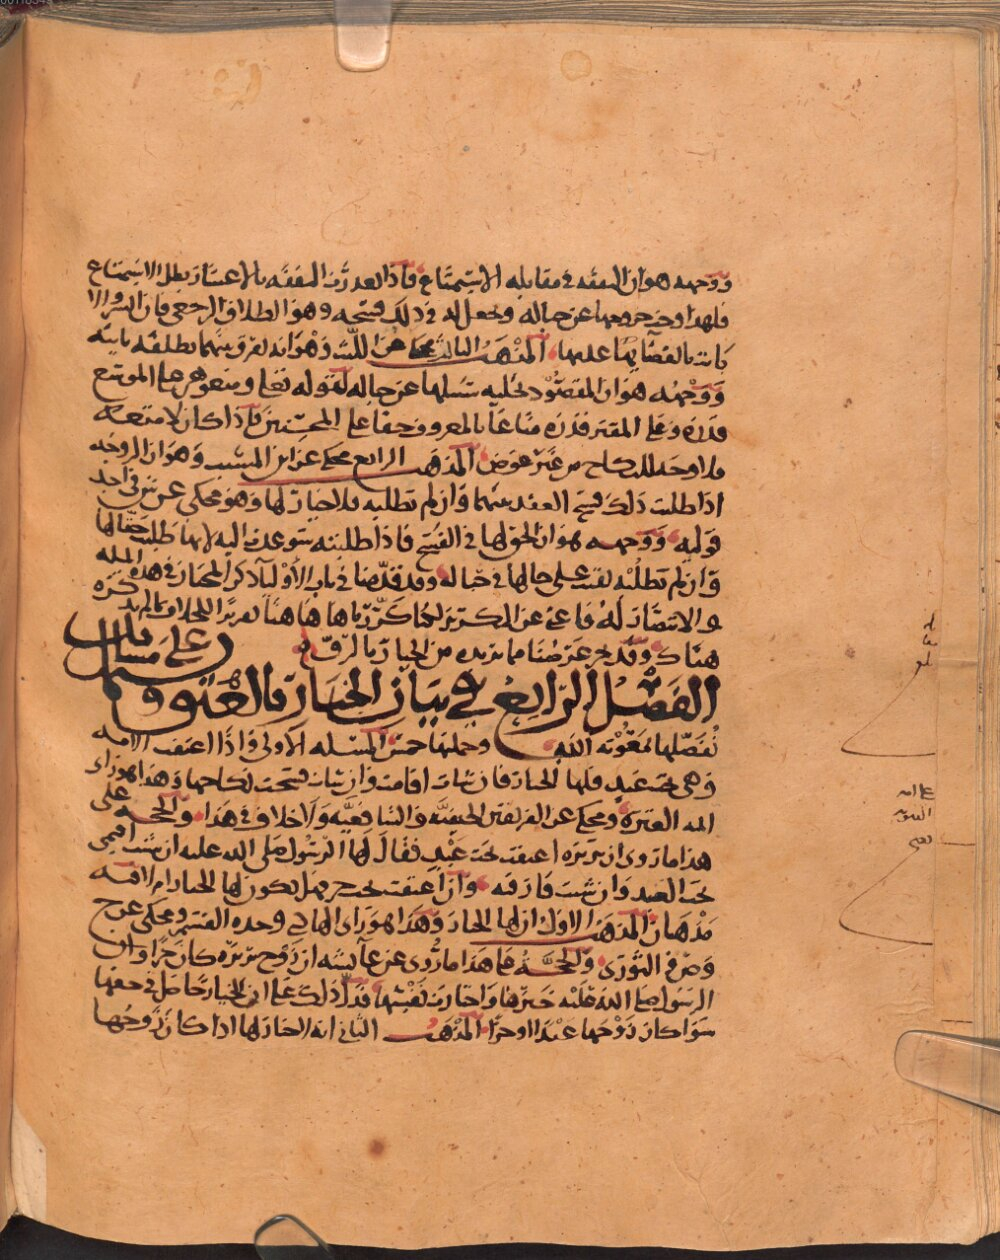 ووجهه هو ان النفقه في مقابله الاستمتاع فاذا تعذرت النفقه بالاعسار بطل الاستمتاع
فلهذا وجب خروجها عن حباله وجعل له في ذلك فسحه وهو الطلاق الرجعي فان ايسر والا
كانت بالقضا عليها المذهب الثالث محكي عن الليث وهو انه يفرق بينهما بطلقه باينه
ووجهه هو ان المقصود تخليه سبيلها عن حباله لقوله تعلى ومتعوهن على الموسع
قدره وعلى المقتر قدره متاعا بالمعروف حقا على المحسنين فاذا كان لا متعه
فلا وجه للنكاح من غير عوض المذهب الرابع محكي عن ابن المسيب وهو ان الزوجه
اذا طلبت ذلك فسخ العقد بينهما وان لم تطلبه فلا خيار لها وهو محكي عن في احد
قوليه ووجهه هو ان الحق لها في الفسخ فاذا طلبته سوعدت اليه لانها طلبت حقا لها
وان لم تطلبه بقيت على حالها في حباله وقد قدمنا في باب الاولياء ذكر المختار في هذه المسله
والانتصار له فاغنى عن التكرير لكنا كررناها هاهنا تعريرا للخلاف ما لم يذكره
هناك وقد نجز غرضنا مما نريده من الخيار بالرق
الفصل الرابع في بيان الخيار بالعتق وفيما على مسايل
نفصلها بمعونه الله وجملتها خمس المسله الاولى واذا اعتقت الامه
وهي تحت عبد فلها الخيار فان شات اقامت وان شات فسخت نكاحها وهذا هو راي
ايمه العترة ومحكي عن الفريقين الحنفيه والشافعيه ولا خلاف في هذا والحجه على
هذا ما روي ان بريره اعتقت تحت عبد فقال لها الرسول صلى الله عليه ان شئت اقيمي
تحت العبد وان شئت فارقيه وان اعتقت تحت حر فهل يكون لها الخيار ام لا فيه
مذهبان المذهب الاول ان لها الخيار وهذا هو راي الهادي وحده القسم ومحكي عن ح
وص في الثوري والحجه على هذا ما روي عن عايشه ان زوج بريره كان حرا وان
الرسول صلى الله عليه خيرها واختارت نفسها فدل ذلك على ان الخيار حاصل في حقها
سوا كان زوجها عبدا او حرا المذهب الثاني انه لا خيار لها اذا كان زوجها